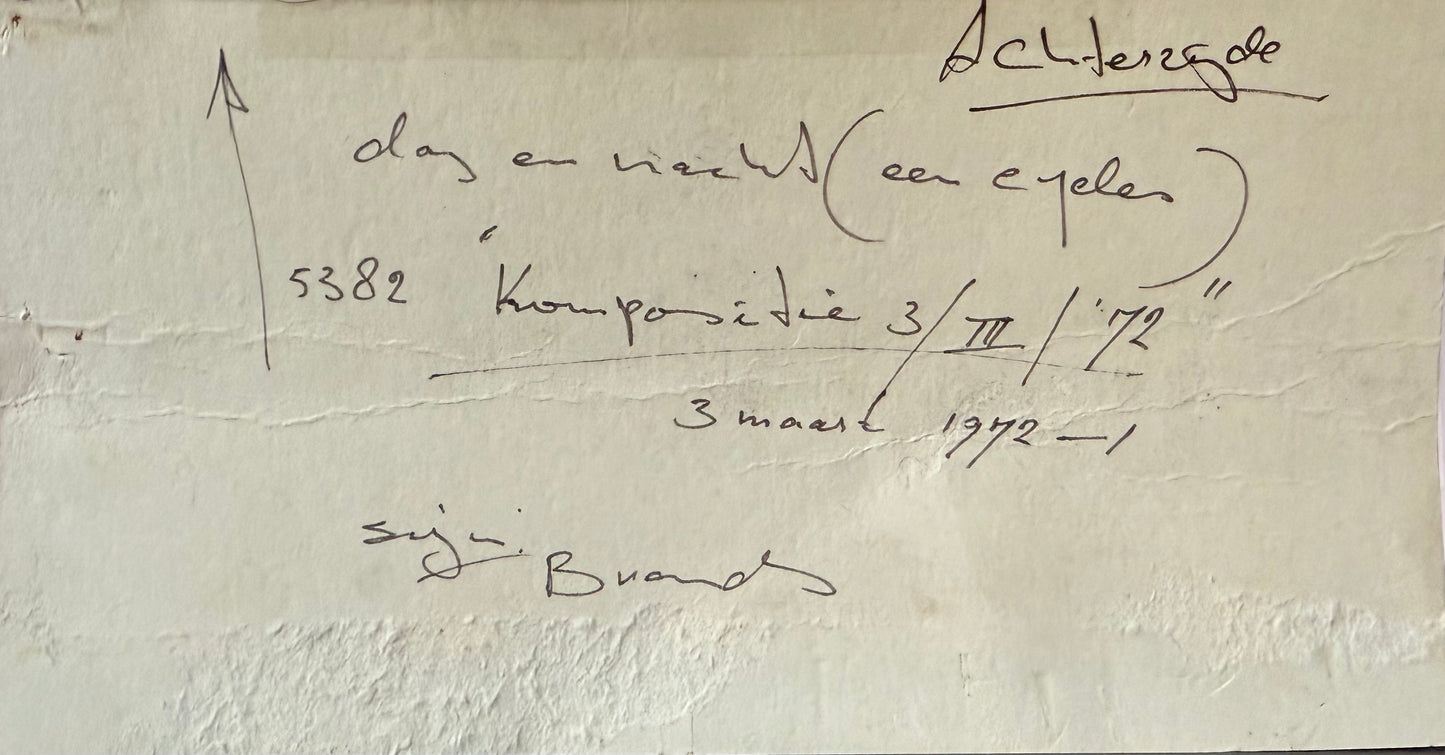 Achterzijde
dag en nacht (een cyclus)
5382 "Kompositie 3/III/'72"
3 maart 1972 — 1
sign. Brands